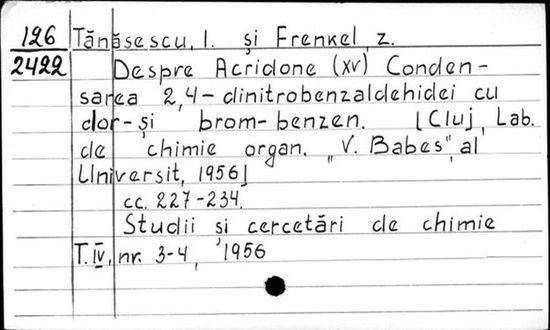 126 Tănăsescu, I. și Frenkel, Z.
2422 Despre Acridone (XV) Conden-
sarea 2,4-dinitrobenzaldehidei cu
clor-și brom-benzen. [Cluj, Lab.
de chimie organ. „V. Babes", al
Universit, 1956]
cc. 227-234.
Studii si cercetări de chimie
T. IV, nr. 3-4, 1956